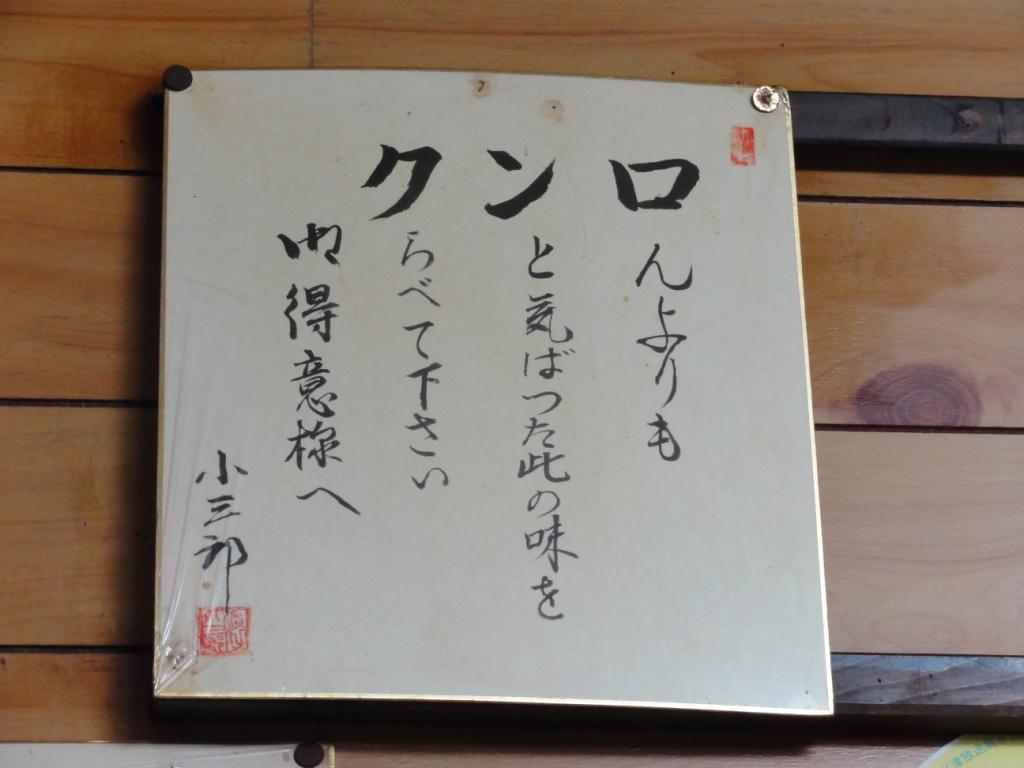 ロんよりも
ンと気ばつた此の味を
クらべて下さい
御得意様へ
小三郎